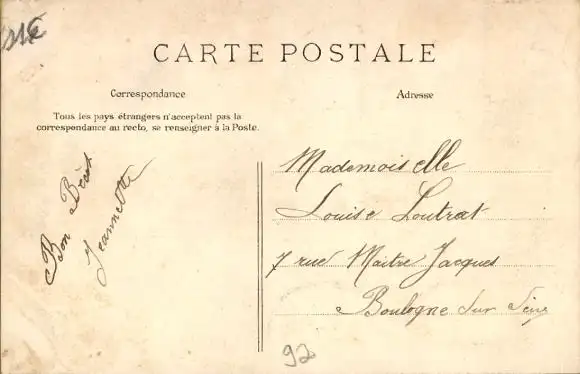 CARTE POSTALE
Correspondance
Adresse
Tous les pays étrangers n'acceptent pas la
correspondance au recto, se renseigner à la Poste.
Bon Bécot
Jeannette
Mademoiselle
Louise Loutrat
7 rue Maitre Jacques
Boulogne sur Seine
92